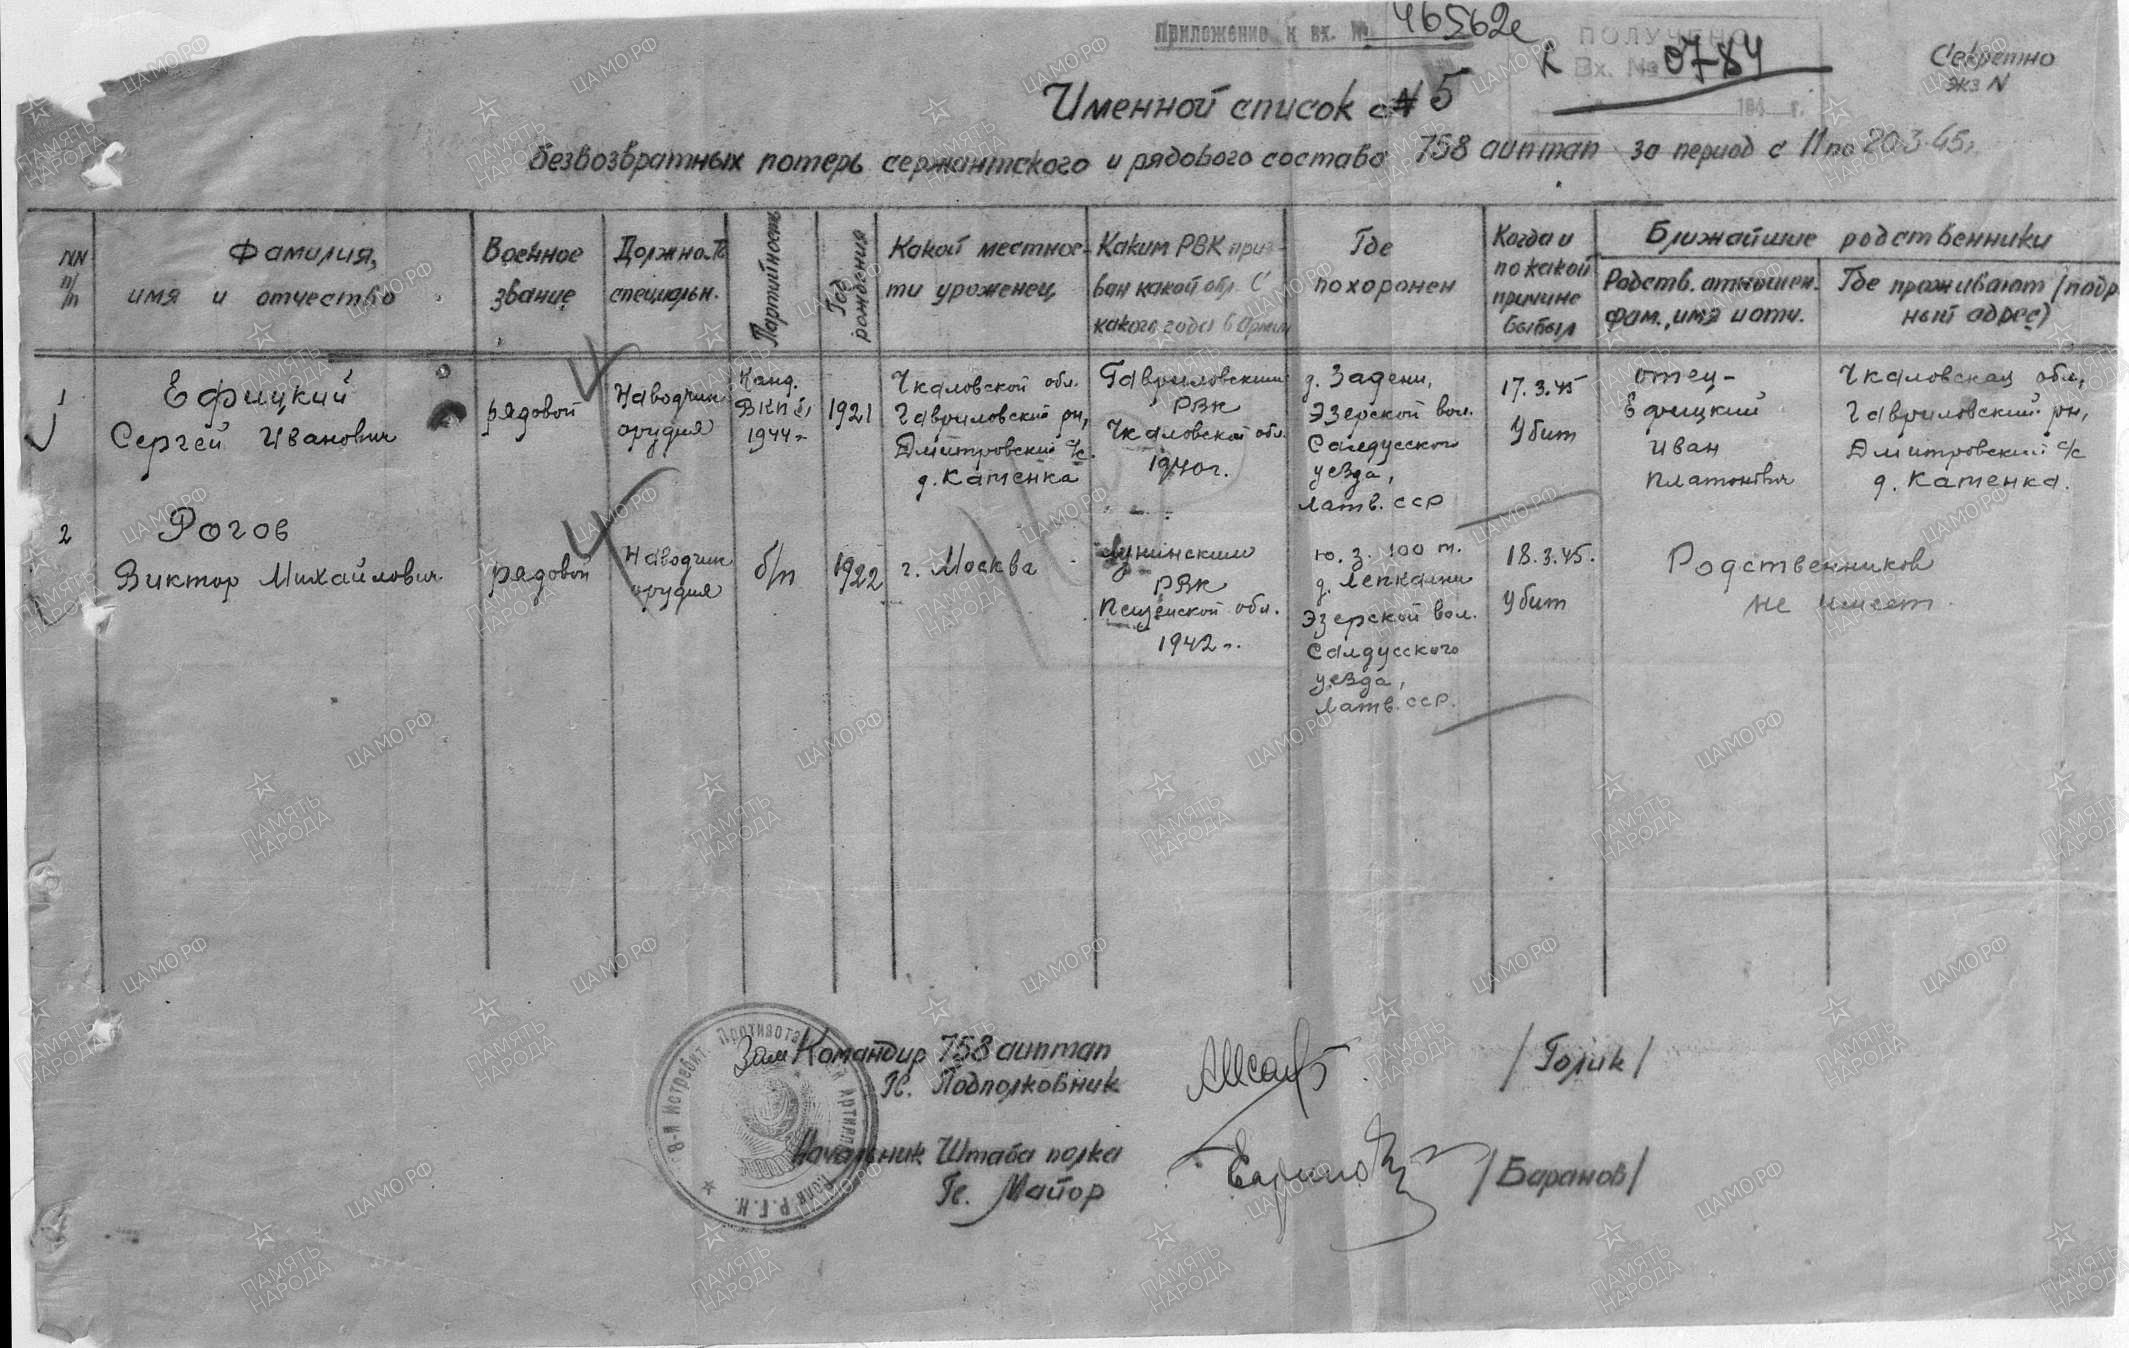 Приложение к вх. № 46562с
ПОЛУЧЕНО
Вх. № 0784
194 г.
Секретно
экз N
Именной список с N 5
безвозвратных потерь сержантского и рядового состава 758 аиптап за период с 11 по 20.3.45г.
NN п/п
Фамилия, имя и отчество
Военное звание
Должность специальн.
Партийность
Год рождения
Какой местности уроженец
Каким РВК призван какой обл. С какого года в Армии
Где похоронен
Когда и по какой причине выбыл
Ближайшие родственники
Родств. отношен. фам., имя и отч.
Где проживают (подр
ный адрес)
1
Ефицкий
Сергей Иванович
рядовой
Наводчик
орудия
Канд.
ВКПб,
1944г.
1921
Чкаловской обл.
Гавриловский рн,
Дмитровский с/с.
д. Катенка
Гавриловским
РВК
Чкаловской обл.
1940г.
д. Задени,
Эзерской вол.
Салдусского
уезда,
Латв. ССР
17.3.45
Убит
отец -
Ефицкий
Иван
Платонович
Чкаловская обл,
Гавриловский рн,
Дмитровский с/с
д. Катенка.
2
Рогов
Виктор Михайлович
рядовой
Наводчик
орудия
б/п
1922
г. Москва
Лунинским
РВК
Пензенской обл.
1942г.
ю. з. 100 м.
д. Лепкални
Эзерской вол.
Салдусского
уезда,
Латв. ССР.
18.3.45.
Убит
Родственников
не имеет.
Зам Командир 758 аиптап
Гв. Подполковник
/Голик/
Начальник Штаба полка
Гв. Майор
/Баранов/
8-й Истребит. Противота
й Артилл
полк Р.Г.К.
ЦАМО.РФ
ПАМЯТЬ НАРОДА